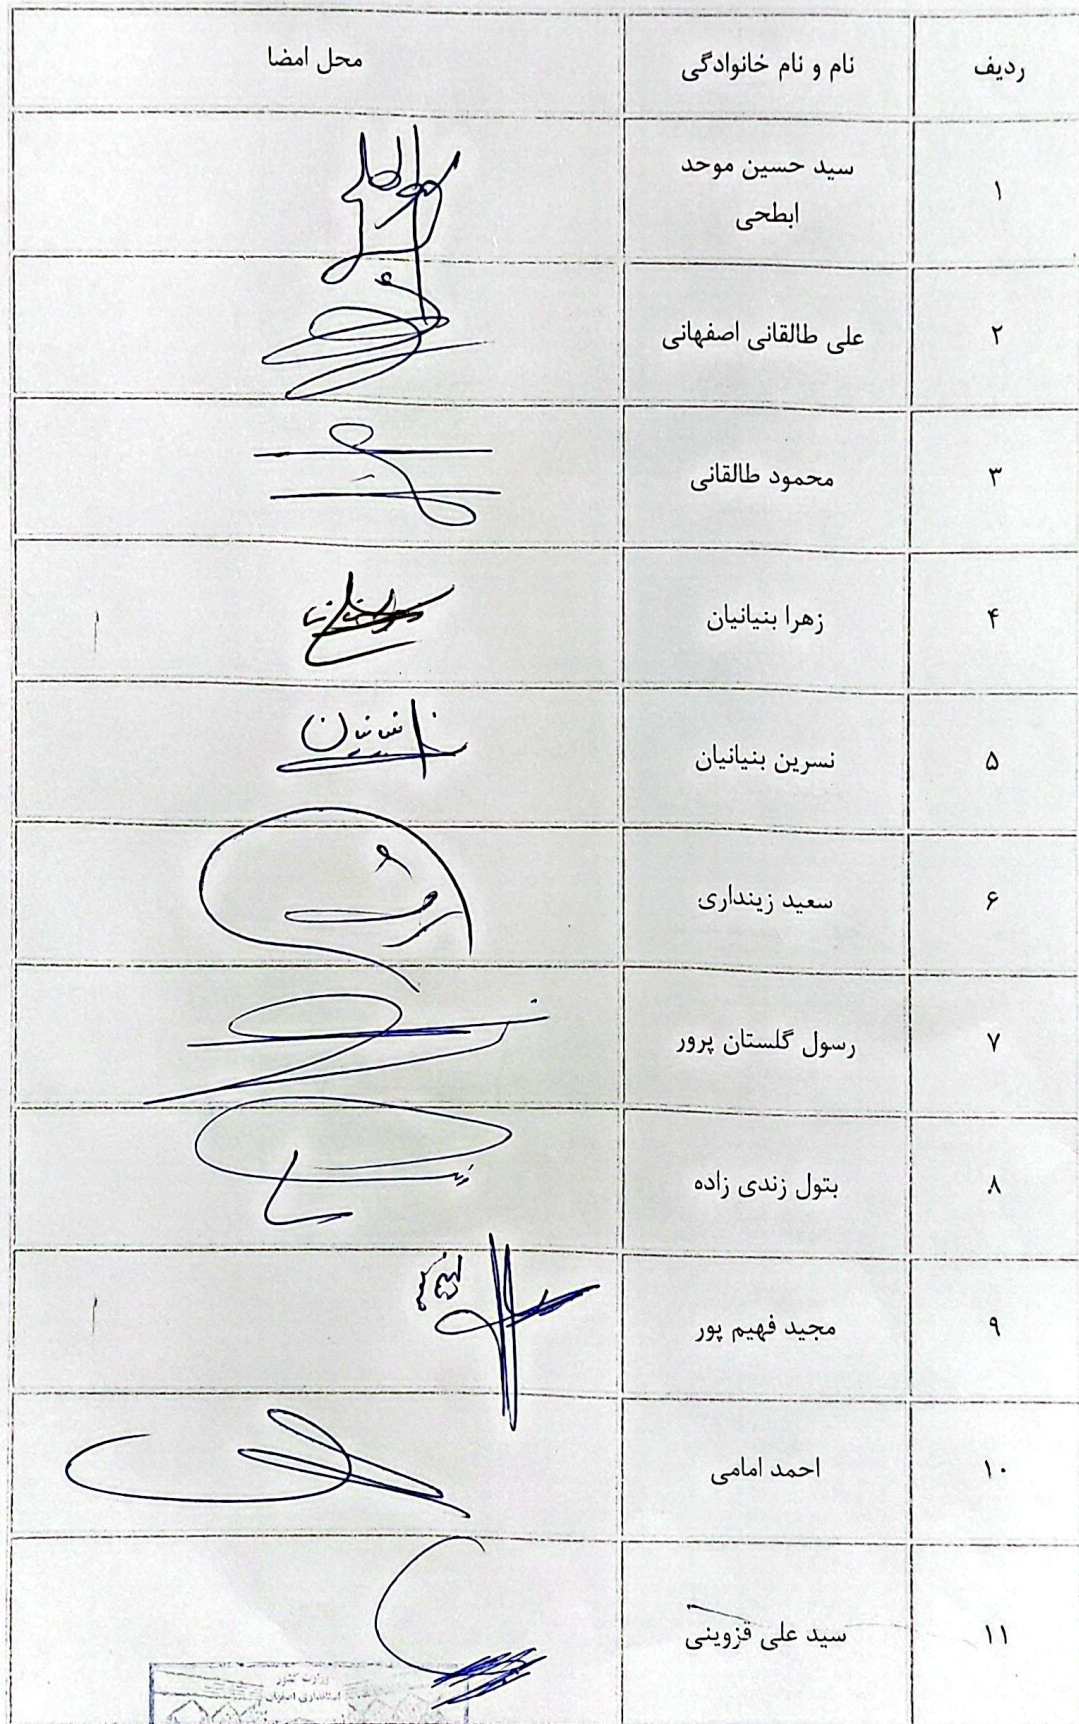 ردیف نام و نام خانوادگی محل امضا
۱ سید حسین موحد
ابطحی
۲ علی طالقانی اصفهانی
۳ محمود طالقانی
۴ زهرا بنیانیان
۵ نسرین بنیانیان
۶ سعید زینداری
۷ رسول گلستان پرور
۸ بتول زندی زاده
۹ مجید فهیم پور
۱۰ احمد امامی
۱۱ سید علی قزوینی
وزارت کشور
استانداری اصفهان